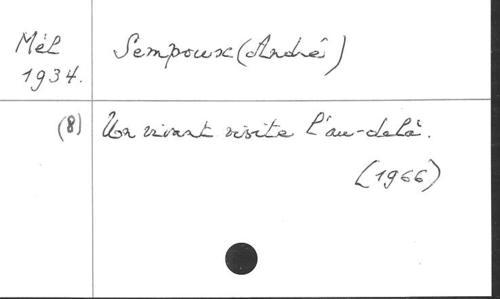 Mél
1934.
Sempoux (André)
(8) Un vivant visite l'au-delà.
(1966)